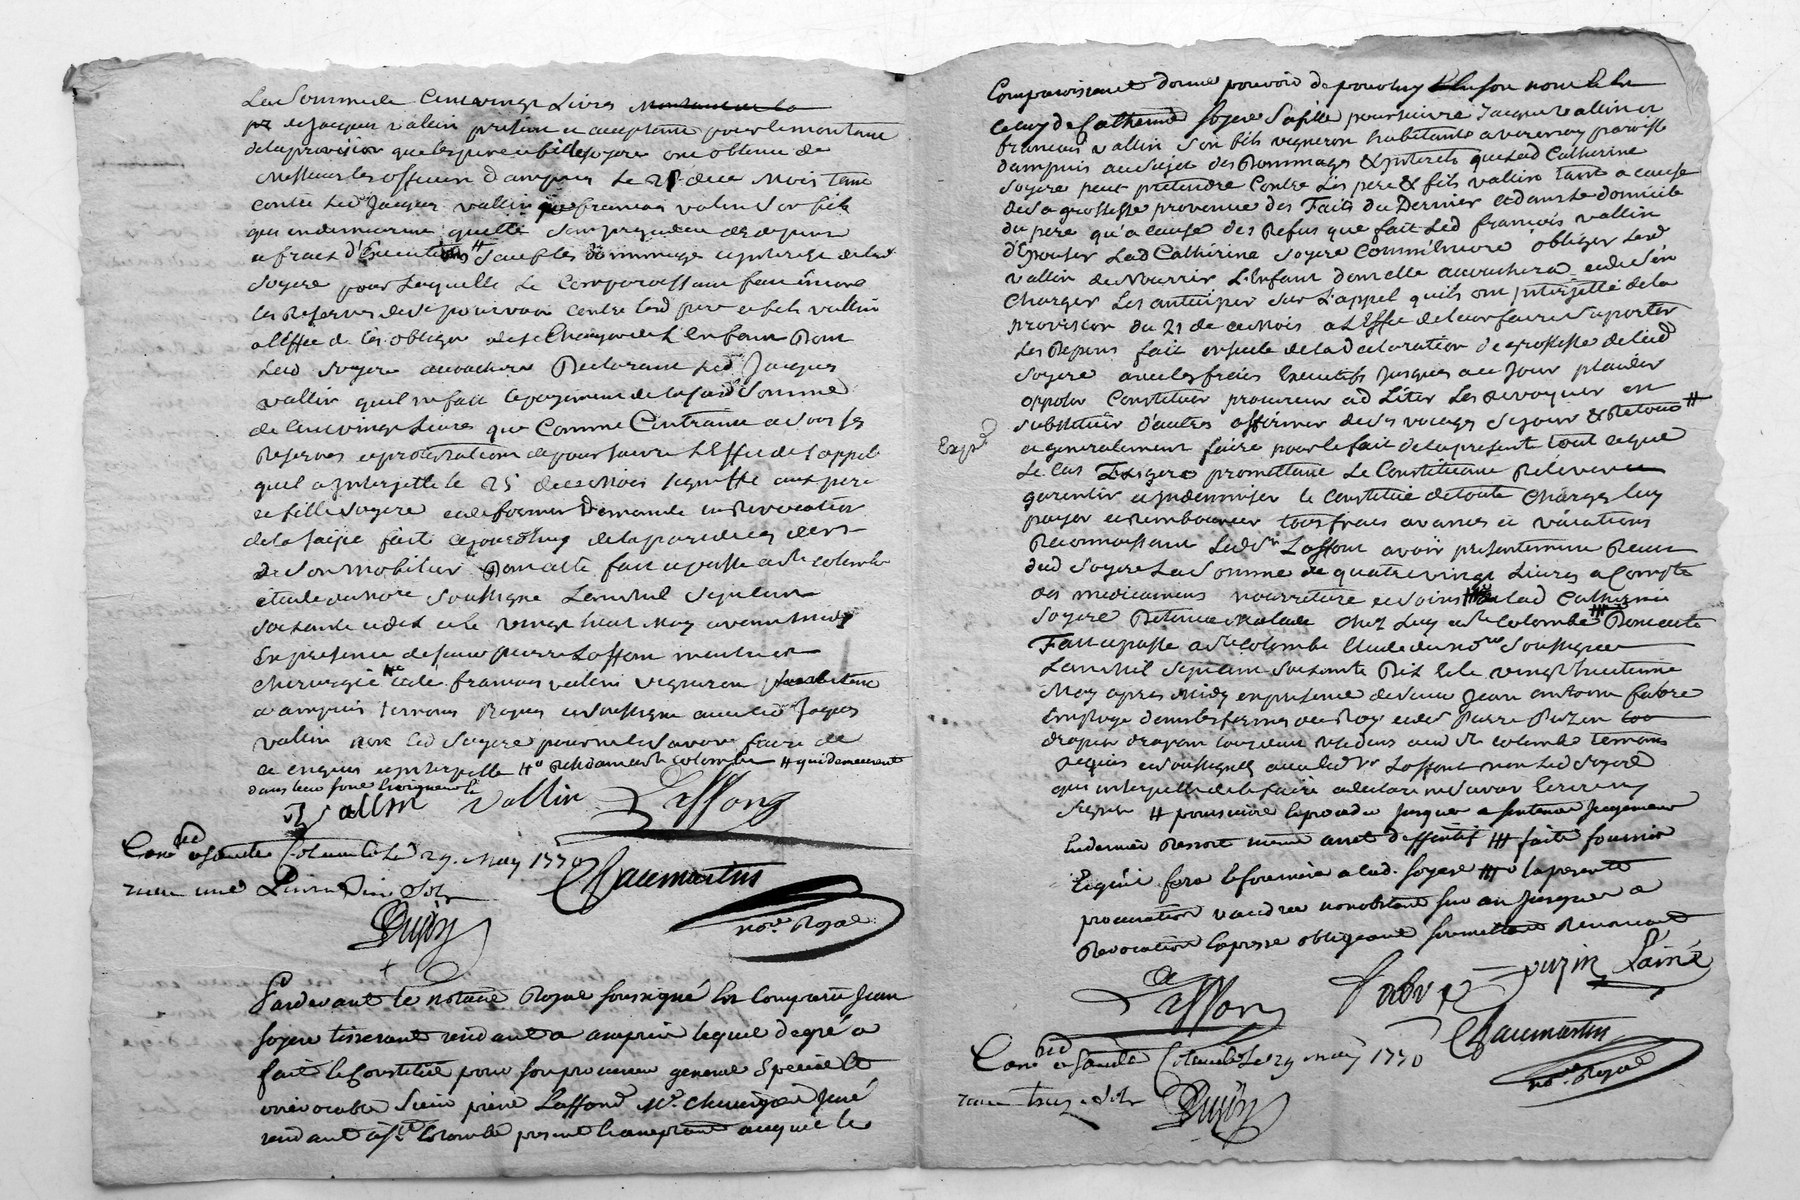 La Somme de Cent vingt Livres
de Jacques vallin present et acceptant pour le montant
de la provision que les pere et fille soyere ont obtenu de
Messieurs les officiers d'ampuis Le 21 de ce Mois tant
contre Led. Jacques vallin que francois valin Son fils
qui en demeurent quitte Sans prejudice des depens
et fraix d'Execution # Sauf les dommages et interest de lad
Soyere pour Laquelle Le Comparoissant fait encore
les Reserves de Se pourvoir contre Lesd pere et fils vallin
a l'Effet de les obliger a se Charger de L'Enfant Dont
Lad Soyere accouchera Declarant Led Jacques
vallin qu'il ne fait le payement de la susd Somme
de Cent vingt Livres que Comme Contraint et Sous Ses
Reserves et protestations de poursuivre L'Effet de l'appel
quil a Interjetté le 25 de ce Mois Signiffié aux pere
et fille Soyere et de former Demande en Revocation
de la Saisie faite cejourd'huy de la part de ces derrs
de Son Mobilier Dont acte fait et passé a Ste colombe
etude du Nore Soussigné L'an mil Sept cent
Soixante et dix et le vingt huit May avant midy
En presence de Sieur pierre Laffont maitre en
chirurgie # et de francois valin vigneron habitant
a ampuis temoins Requis et Soussignés avec led Jacques
vallin non led Soyere pour ne le Savoir faire de
ce enquis et interpellé # Residant a Ste colombe # qui demeurent
J Vallin Vallin Laffont
Conlé a Sainte Colombe Le 29. May 1770
Chaumartin
nore Royal
Dupuy
Pardevant le notaire Royal soussigné Est Comparu Jean
Soyere tisserant residant a ampuis lequel de gré a
fait & Constitué pour son procureur general Special &
irrevocable Sieur pierre Laffond Me Chirurgien Juré
residant a Ste Colombe present & acceptant auquel le
Comparoissant donne pouvoir de pour luy
Catherine Soyere Sa fille poursuivre Jacques vallin et
francois vallin Son fils vigneron habitants a verenay paroisse
dampuis au Sujet des Dommages & Interets que Lad Catherine
Soyere peut pretendre Contre Les pere & fils vallin tant a cause
de Sa grossesse provenue des Faits du Dernier et dans le domicile
du pere qu'a cause des Refus que fait Led francois vallin
d'Epouser Lad Catherine Soyere Comm'Encore obliger Lesd
vallin de Nourrir L'Enfant dont elle accouchera et de S'en
Charger Les anticiper Sur L'appel quils ont Interjetté de la
provision du 21 de ce Mois a L'Effet de leur faire Suporter
Les Depens fait ensuite de la Declaration de grossesse de lad
Soyere avec les fraix Executifs Jusques a ce Jour plaider
opposer Constituer procureur ad Lites Les Revoquer en
substituer d'autres affirmer de Ses voyages Sejour & Retour #
et generalement faire pour le fait de la presente tout ce que
Le Cas Exigera promettant Le Constituant Relever
garentir et Indemniser le Constitué de toute Charges luy
payer et Rembourcer tous frais avances et vacations
Reconnoissant Led Sr Laffont avoir presentement Receu
dud Soyere La Somme de quatre vingt Livres a Compte
des medicamens nourriture et Soins de lad Catherine
Soyere Detenue Malade Chez Luy a Ste Colombe Dont acte
Fait et passé a Ste colombe Etude du nore Soussigné
L'an Mil Sept cent Soixante Dix Et le vingt huitieme
May apres Midy en presence de Sieur Jean antoine fabre
Employé dans les fermes du Roy et de Sr pierre Ouzin
drapier drapant tous deux residens aud Ste colombe temoins
Requis et Soussignés avec led Sr Laffont non Led Soyere
qui interpellé de le faire a declaré ne Savoir Ecrire ny
Signer # poursuivre la procedure Jusques a Sentence Jugement
En dernier Ressort meme arret deffinitif ### faite fournir
procuration vaudra nonobstant Sur an Jusques a
Revocation Expresse obligeant Soumettant Renonceant
Laffont fabre Ouzin L'ainé
Conlé a Sainte Colombe Le 29 May 1770
Chaumartin
nore Royal
Dupuy